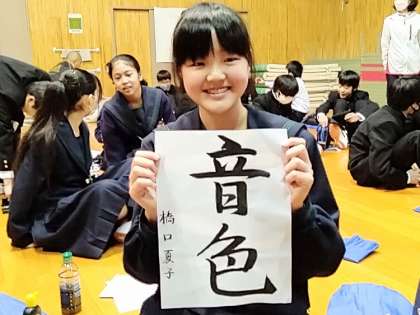 音色
橋口夏子